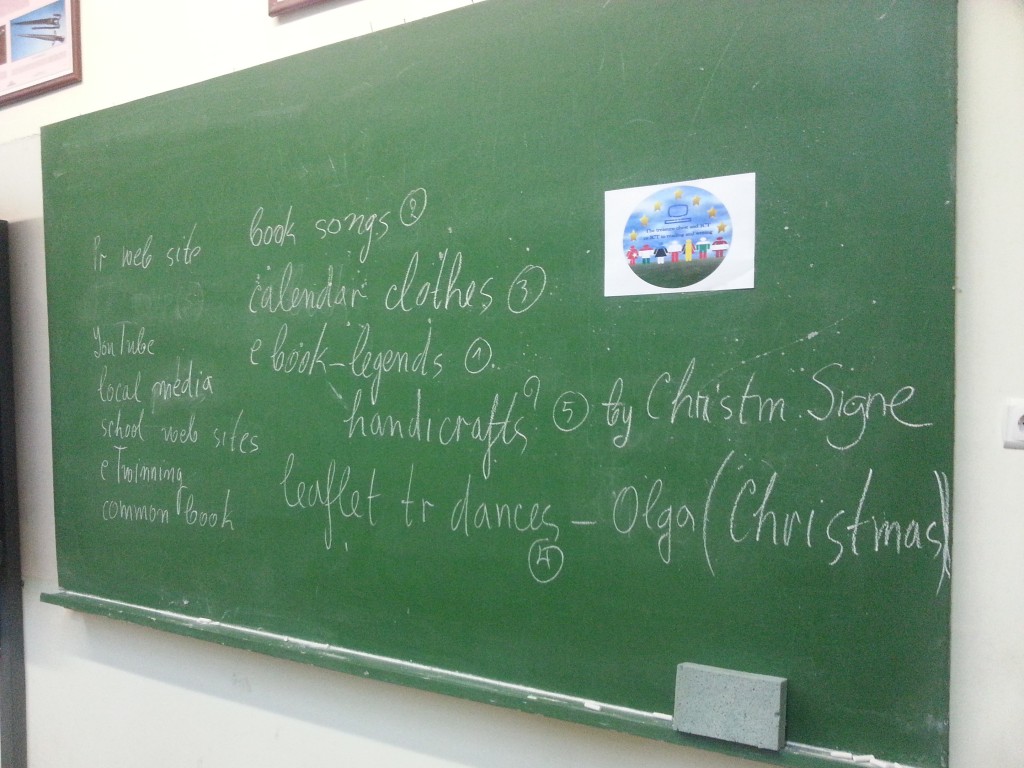 Pr web site
YouTube
local media
school web sites
eTwinning
common book
book songs ②
calendar clothes ③
e book-legends ①
handicrafts? ⑤ by Christm. Signe
leaflet tr dances - Olga (Christmas)
④